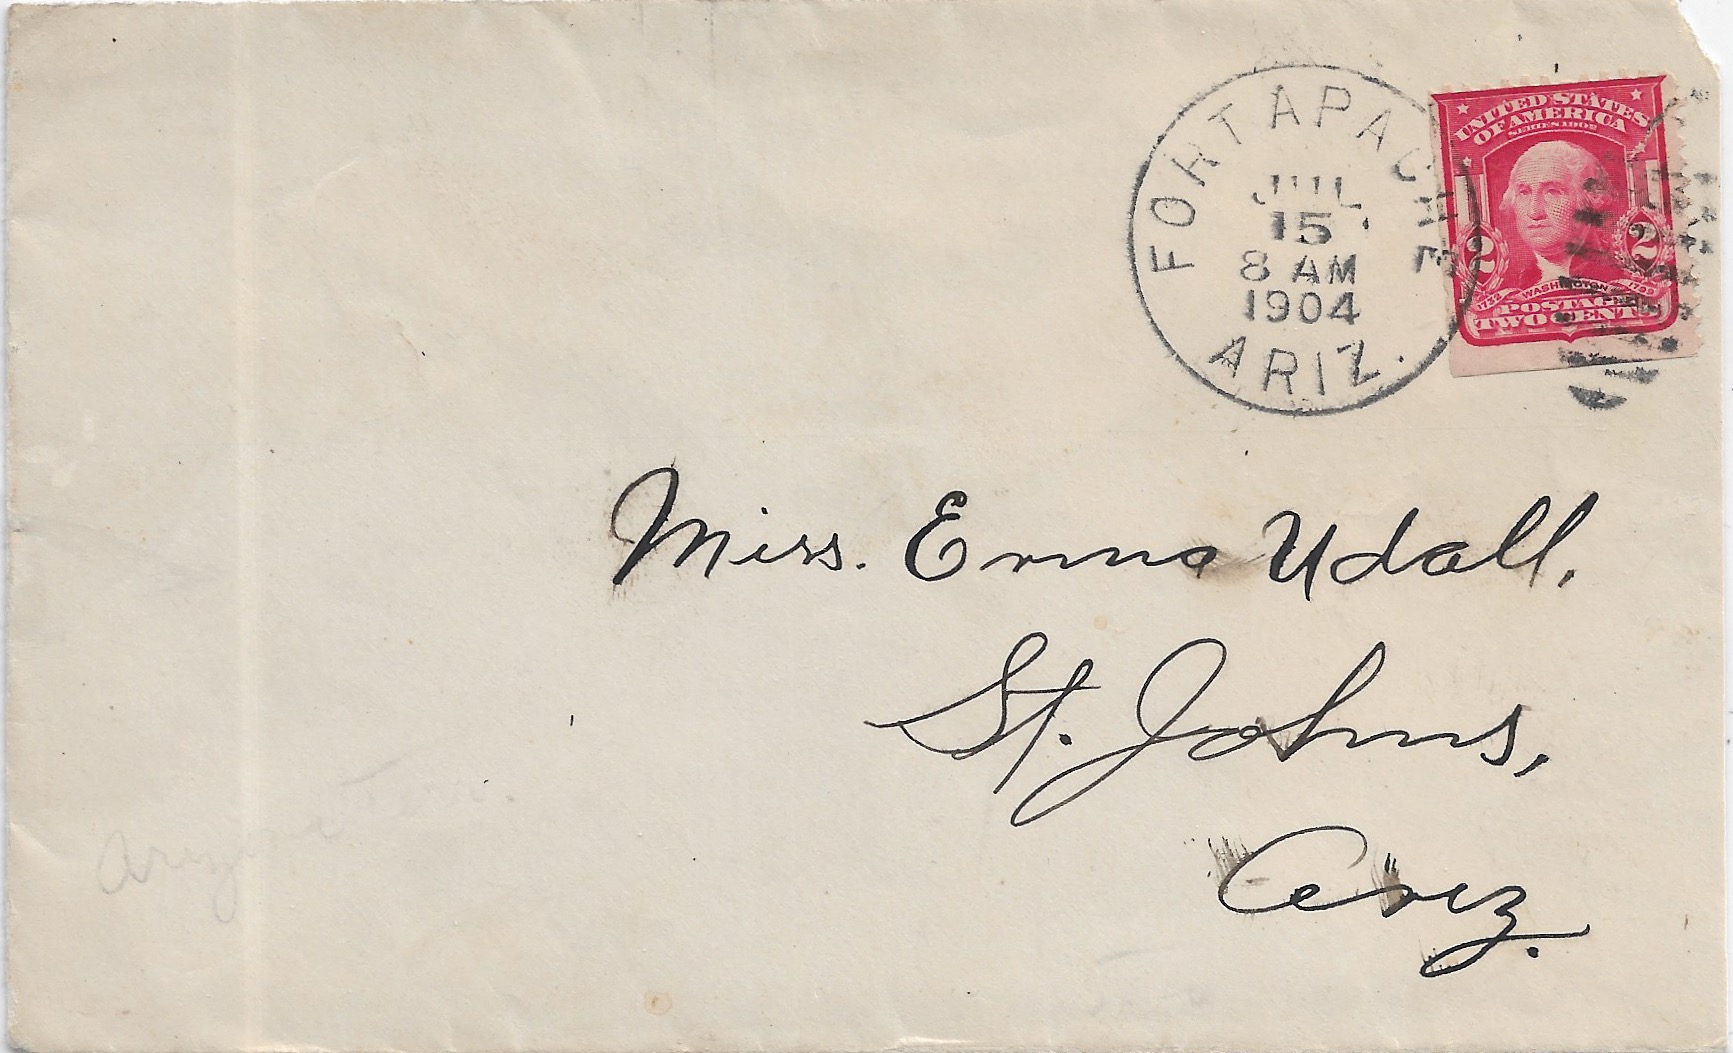 FORT APACHE
JUL
15
8 AM
1904
ARIZ.
UNITED STATES
OF AMERICA
SERIES 1902
2 2
1732 WASHINGTON 1799
POSTAGE
TWO CENTS
Miss. Erma Udall,
St. Johns,
Ariz.
Arizona Terr.